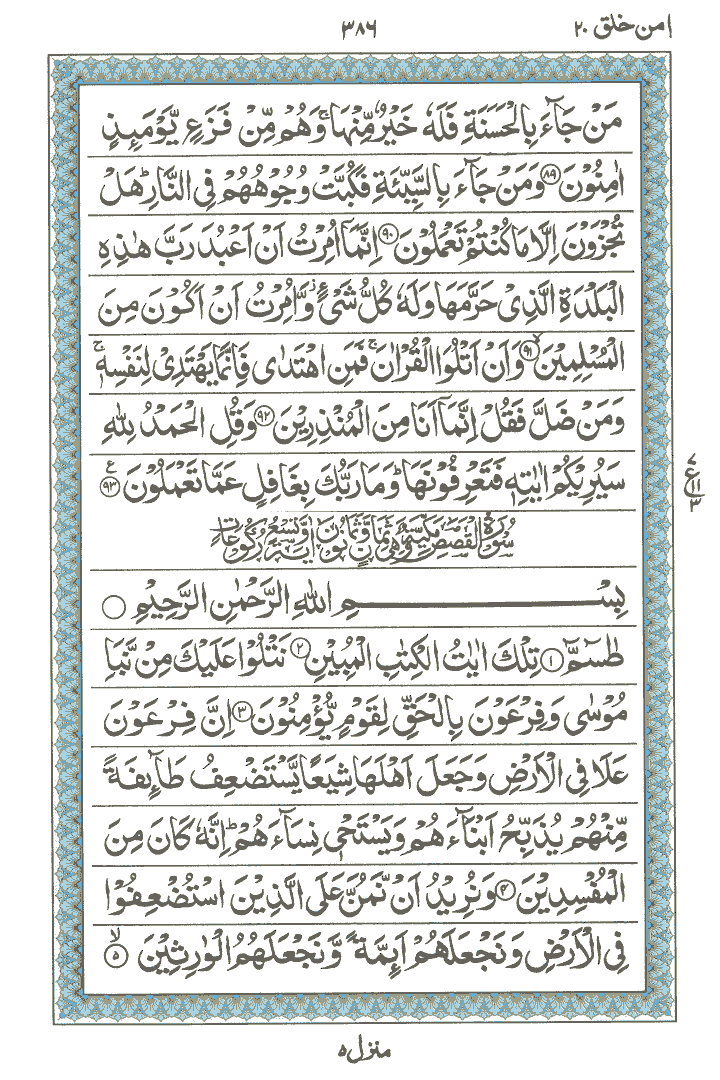 امن خلق ۲۰
۳۸۶
مَنْ جَآءَ بِالْحَسَنَةِ فَلَهٗ خَيْرٌ مِّنْهَا ۚ وَهُمْ مِّنْ فَزَعٍ يَّوْمَىِٕذٍ
اٰمِنُوْنَ ۝۸۹ وَمَنْ جَآءَ بِالسَّيِّئَةِ فَكُبَّتْ وُجُوْهُهُمْ فِى النَّارِ ؕ هَلْ
تُجْزَوْنَ اِلَّا مَا كُنْتُمْ تَعْمَلُوْنَ ۝۹۰ اِنَّمَاۤ اُمِرْتُ اَنْ اَعْبُدَ رَبَّ هٰذِهِ
الْبَلْدَةِ الَّذِىْ حَرَّمَهَا وَلَهٗ كُلُّ شَىْءٍ ؗ وَّاُمِرْتُ اَنْ اَكُوْنَ مِنَ
الْمُسْلِمِيْنَ ۙ۝۹۱ وَاَنْ اَتْلُوَا الْقُرْاٰنَ ۚ فَمَنِ اهْتَدٰى فَاِنَّمَا يَهْتَدِىْ لِنَفْسِهٖ ۚ
وَمَنْ ضَلَّ فَقُلْ اِنَّمَاۤ اَنَا مِنَ الْمُنْذِرِيْنَ ۝۹۲ وَقُلِ الْحَمْدُ لِلّٰهِ
سَيُرِيْكُمْ اٰيٰتِهٖ فَتَعْرِفُوْنَهَا ؕ وَمَا رَبُّكَ بِغَافِلٍ عَمَّا تَعْمَلُوْنَ ۝۹۳ ع
ع ۷ ۱۱ ۳
سُوْرَةُ الْقَصَصِ مَكِّيَّةٌ وَّهِىَ ثَمَانٍ وَّثَمَانُوْنَ اٰيَةً وَّتِسْعُ رُكُوْعَاتٍ
بِسْمِ اللّٰهِ الرَّحْمٰنِ الرَّحِيْمِ ۝
طٰسٓمّٓ ۝۱ تِلْكَ اٰيٰتُ الْكِتٰبِ الْمُبِيْنِ ۝۲ نَتْلُوْا عَلَيْكَ مِنْ نَّبَاِ
مُوْسٰى وَفِرْعَوْنَ بِالْحَقِّ لِقَوْمٍ يُّؤْمِنُوْنَ ۝۳ اِنَّ فِرْعَوْنَ
عَلَا فِى الْاَرْضِ وَجَعَلَ اَهْلَهَا شِيَعًا يَّسْتَضْعِفُ طَآىِٕفَةً
مِّنْهُمْ يُذَبِّحُ اَبْنَآءَهُمْ وَيَسْتَحْىٖ نِسَآءَهُمْ ؕ اِنَّهٗ كَانَ مِنَ
الْمُفْسِدِيْنَ ۝۴ وَنُرِيْدُ اَنْ نَّمُنَّ عَلَى الَّذِيْنَ اسْتُضْعِفُوْا
فِى الْاَرْضِ وَنَجْعَلَهُمْ اَىِٕمَّةً وَّنَجْعَلَهُمُ الْوٰرِثِيْنَ ۙ۝۵
منزل ۵